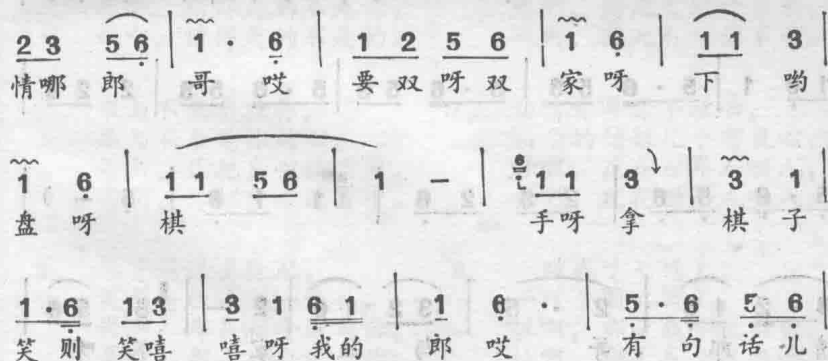 2 3 5 6 | 1 · 6 | 1 2 5 6 | 1 6 | 1 1 3 |
情哪 郎 哥 哎 要 双 呀 双 家 呀 下 哟
1 6 | 1 1 5 6 | 1 – | 6 1 1 3 | 3 1 |
盘 呀 棋 手 呀 拿 棋 子
1 · 6 1 3 | 3 1 6 1 | 1 6 · | 5 · 6 5 6 |
笑 则 笑 嘻 嘻 呀 我 的 郎 哎 有 句 话 儿